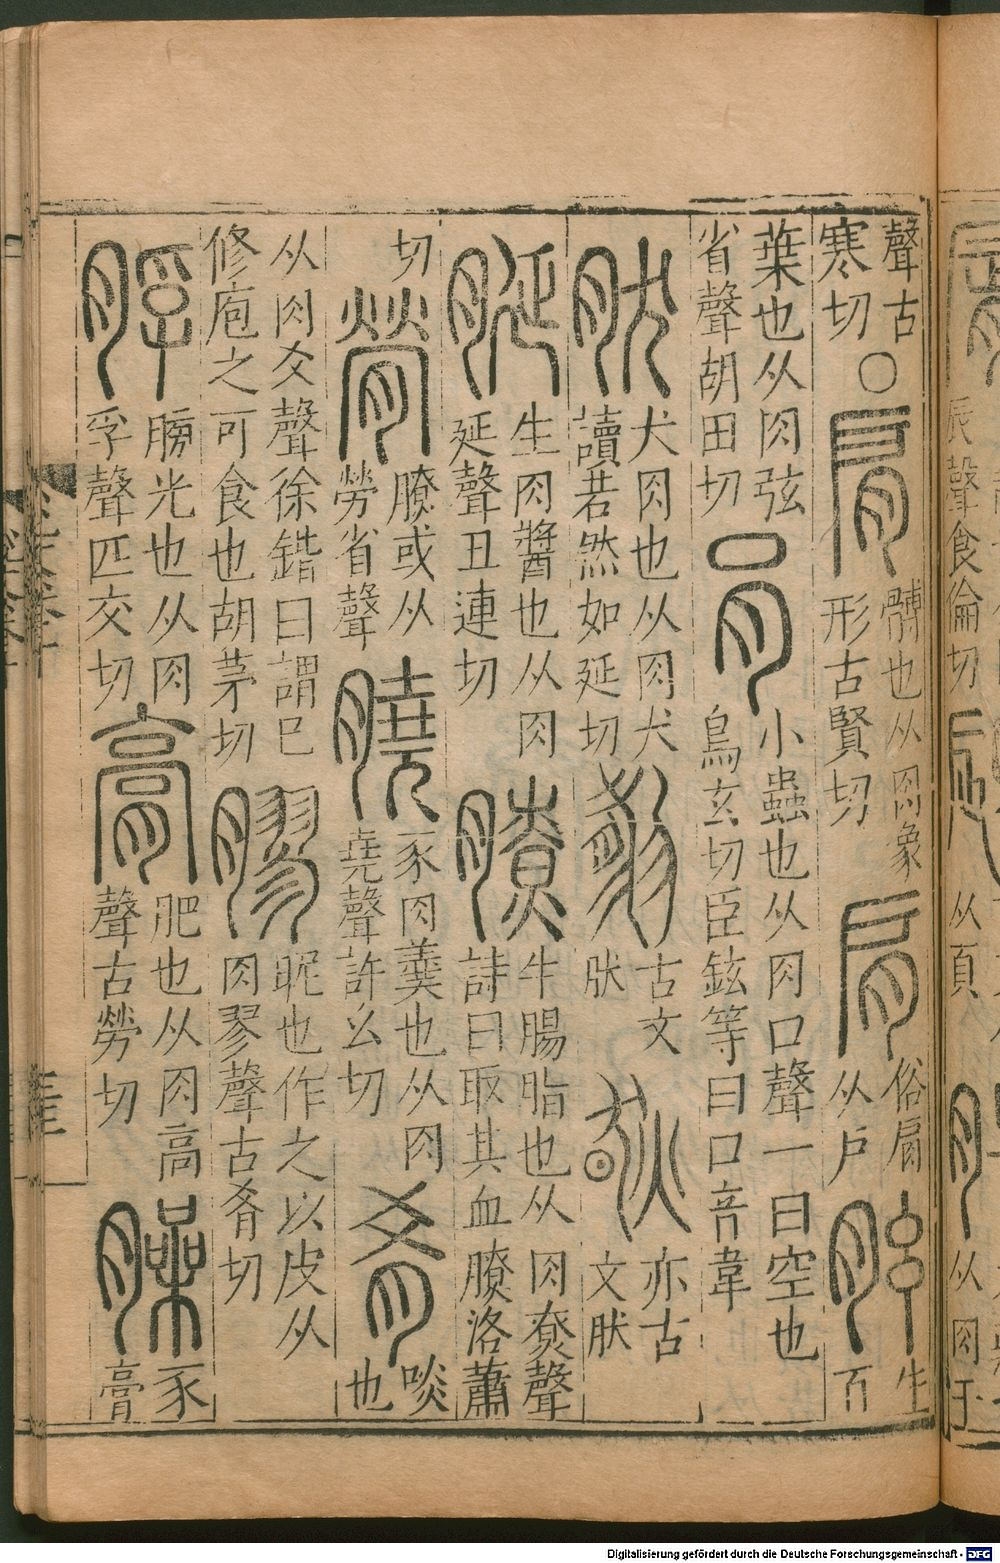 脣 辰聲食倫切
从頁
从肉于
聲古寒切○肩髆也从肉象形古賢切肩俗肩从户胘牛百
葉也从肉弦省聲胡田切肙小蟲也从肉口聲一曰空也烏玄切臣鉉等曰口音韋
肰犬肉也从肉犬讀若然如延切𤡮古文肰𤉷亦古文肰
脠生肉醬也从肉延聲丑連切膫牛腸脂也从肉尞聲詩曰取其血膫洛蕭
切膋膫或从勞省聲膮豕肉羹也从肉堯聲許幺切肴啖也
从肉爻聲徐鍇曰謂已修庖之可食也胡茅切膠昵也作之以皮从肉翏聲古肴切
脬膀光也从肉孚聲匹交切膏肥也从肉高聲古勞切臊豕膏
Digitalisierung gefördert durch die Deutsche Forschungsgemeinschaft - DFG